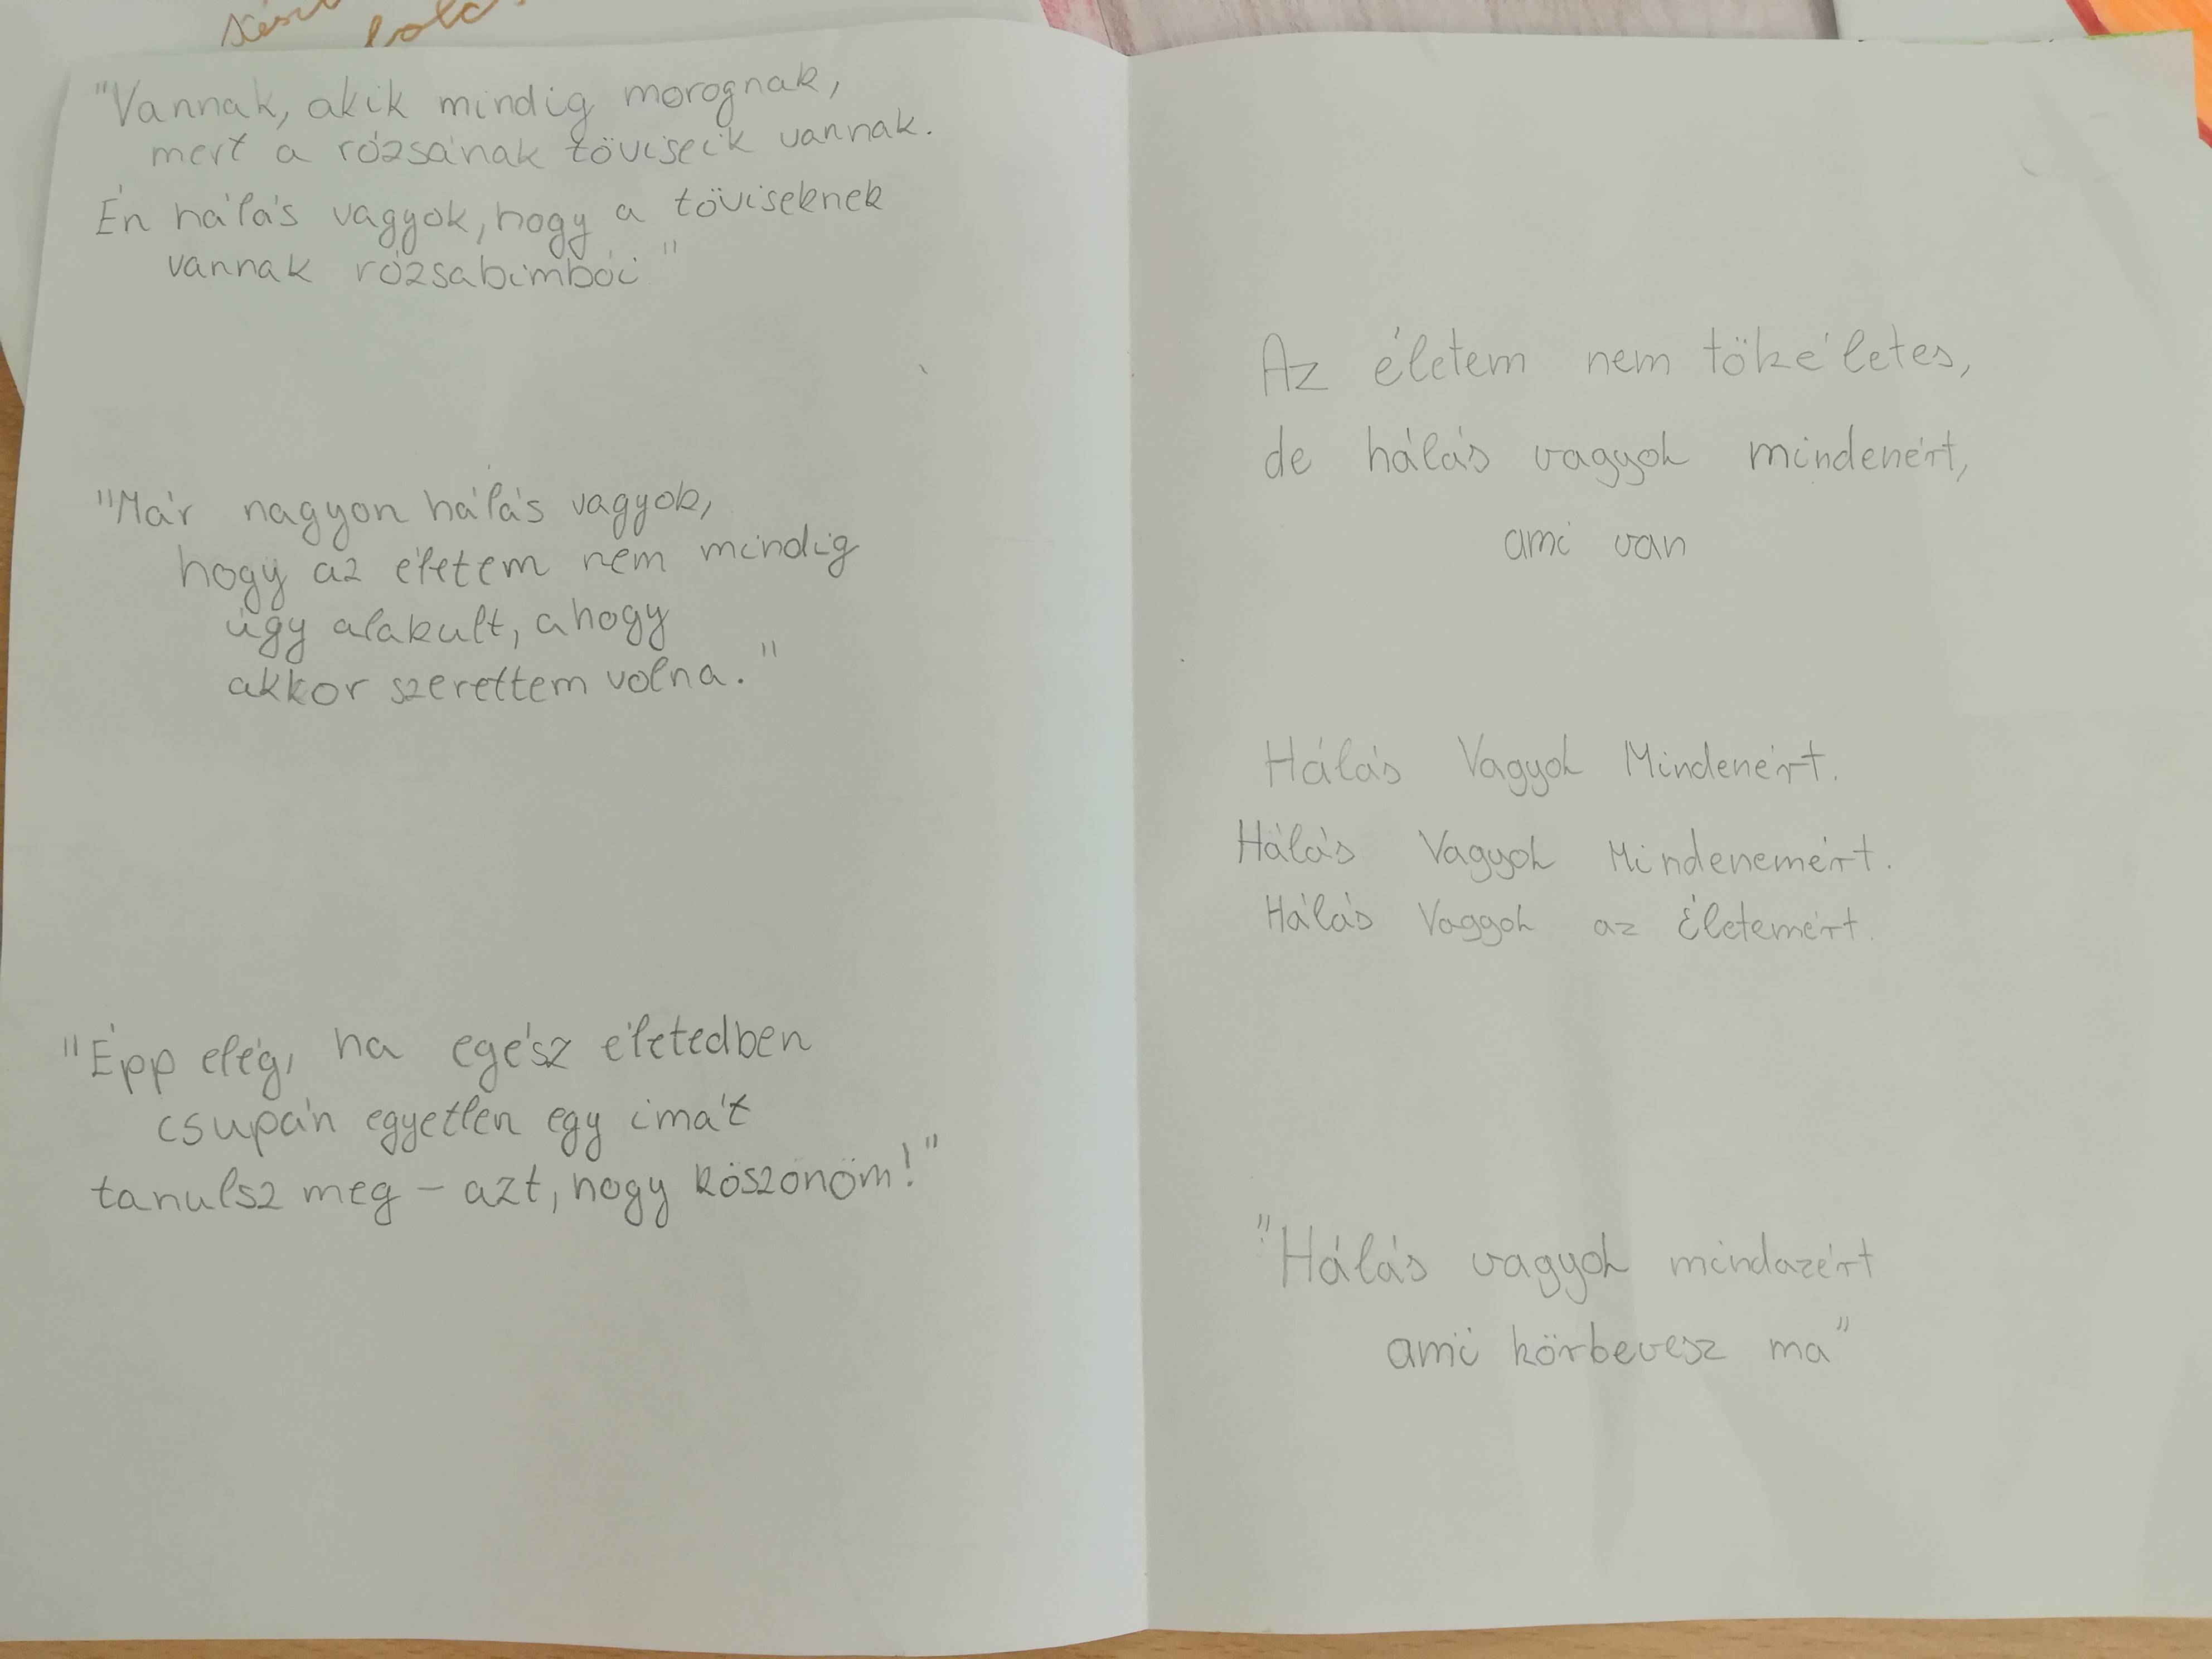 "Vannak, akik mindig morognak,
mert a rózsának töviseik vannak.
Én hálás vagyok, hogy a töviseknek
vannak rózsabimbói"
"Már nagyon hálás vagyok,
hogy az életem nem mindig
úgy alakult, ahogy
akkor szerettem volna."
"Épp elég, ha egész életedben
csupán egyetlen egy imát
tanulsz meg – azt, hogy köszönöm!"
Az életem nem tökéletes,
de hálás vagyok mindenért,
ami van
Hálás Vagyok Mindenért.
Hálás Vagyok Mindenemért.
Hálás Vagyok az Életemért.
"Hálás vagyok mindazért
ami körbevesz ma"